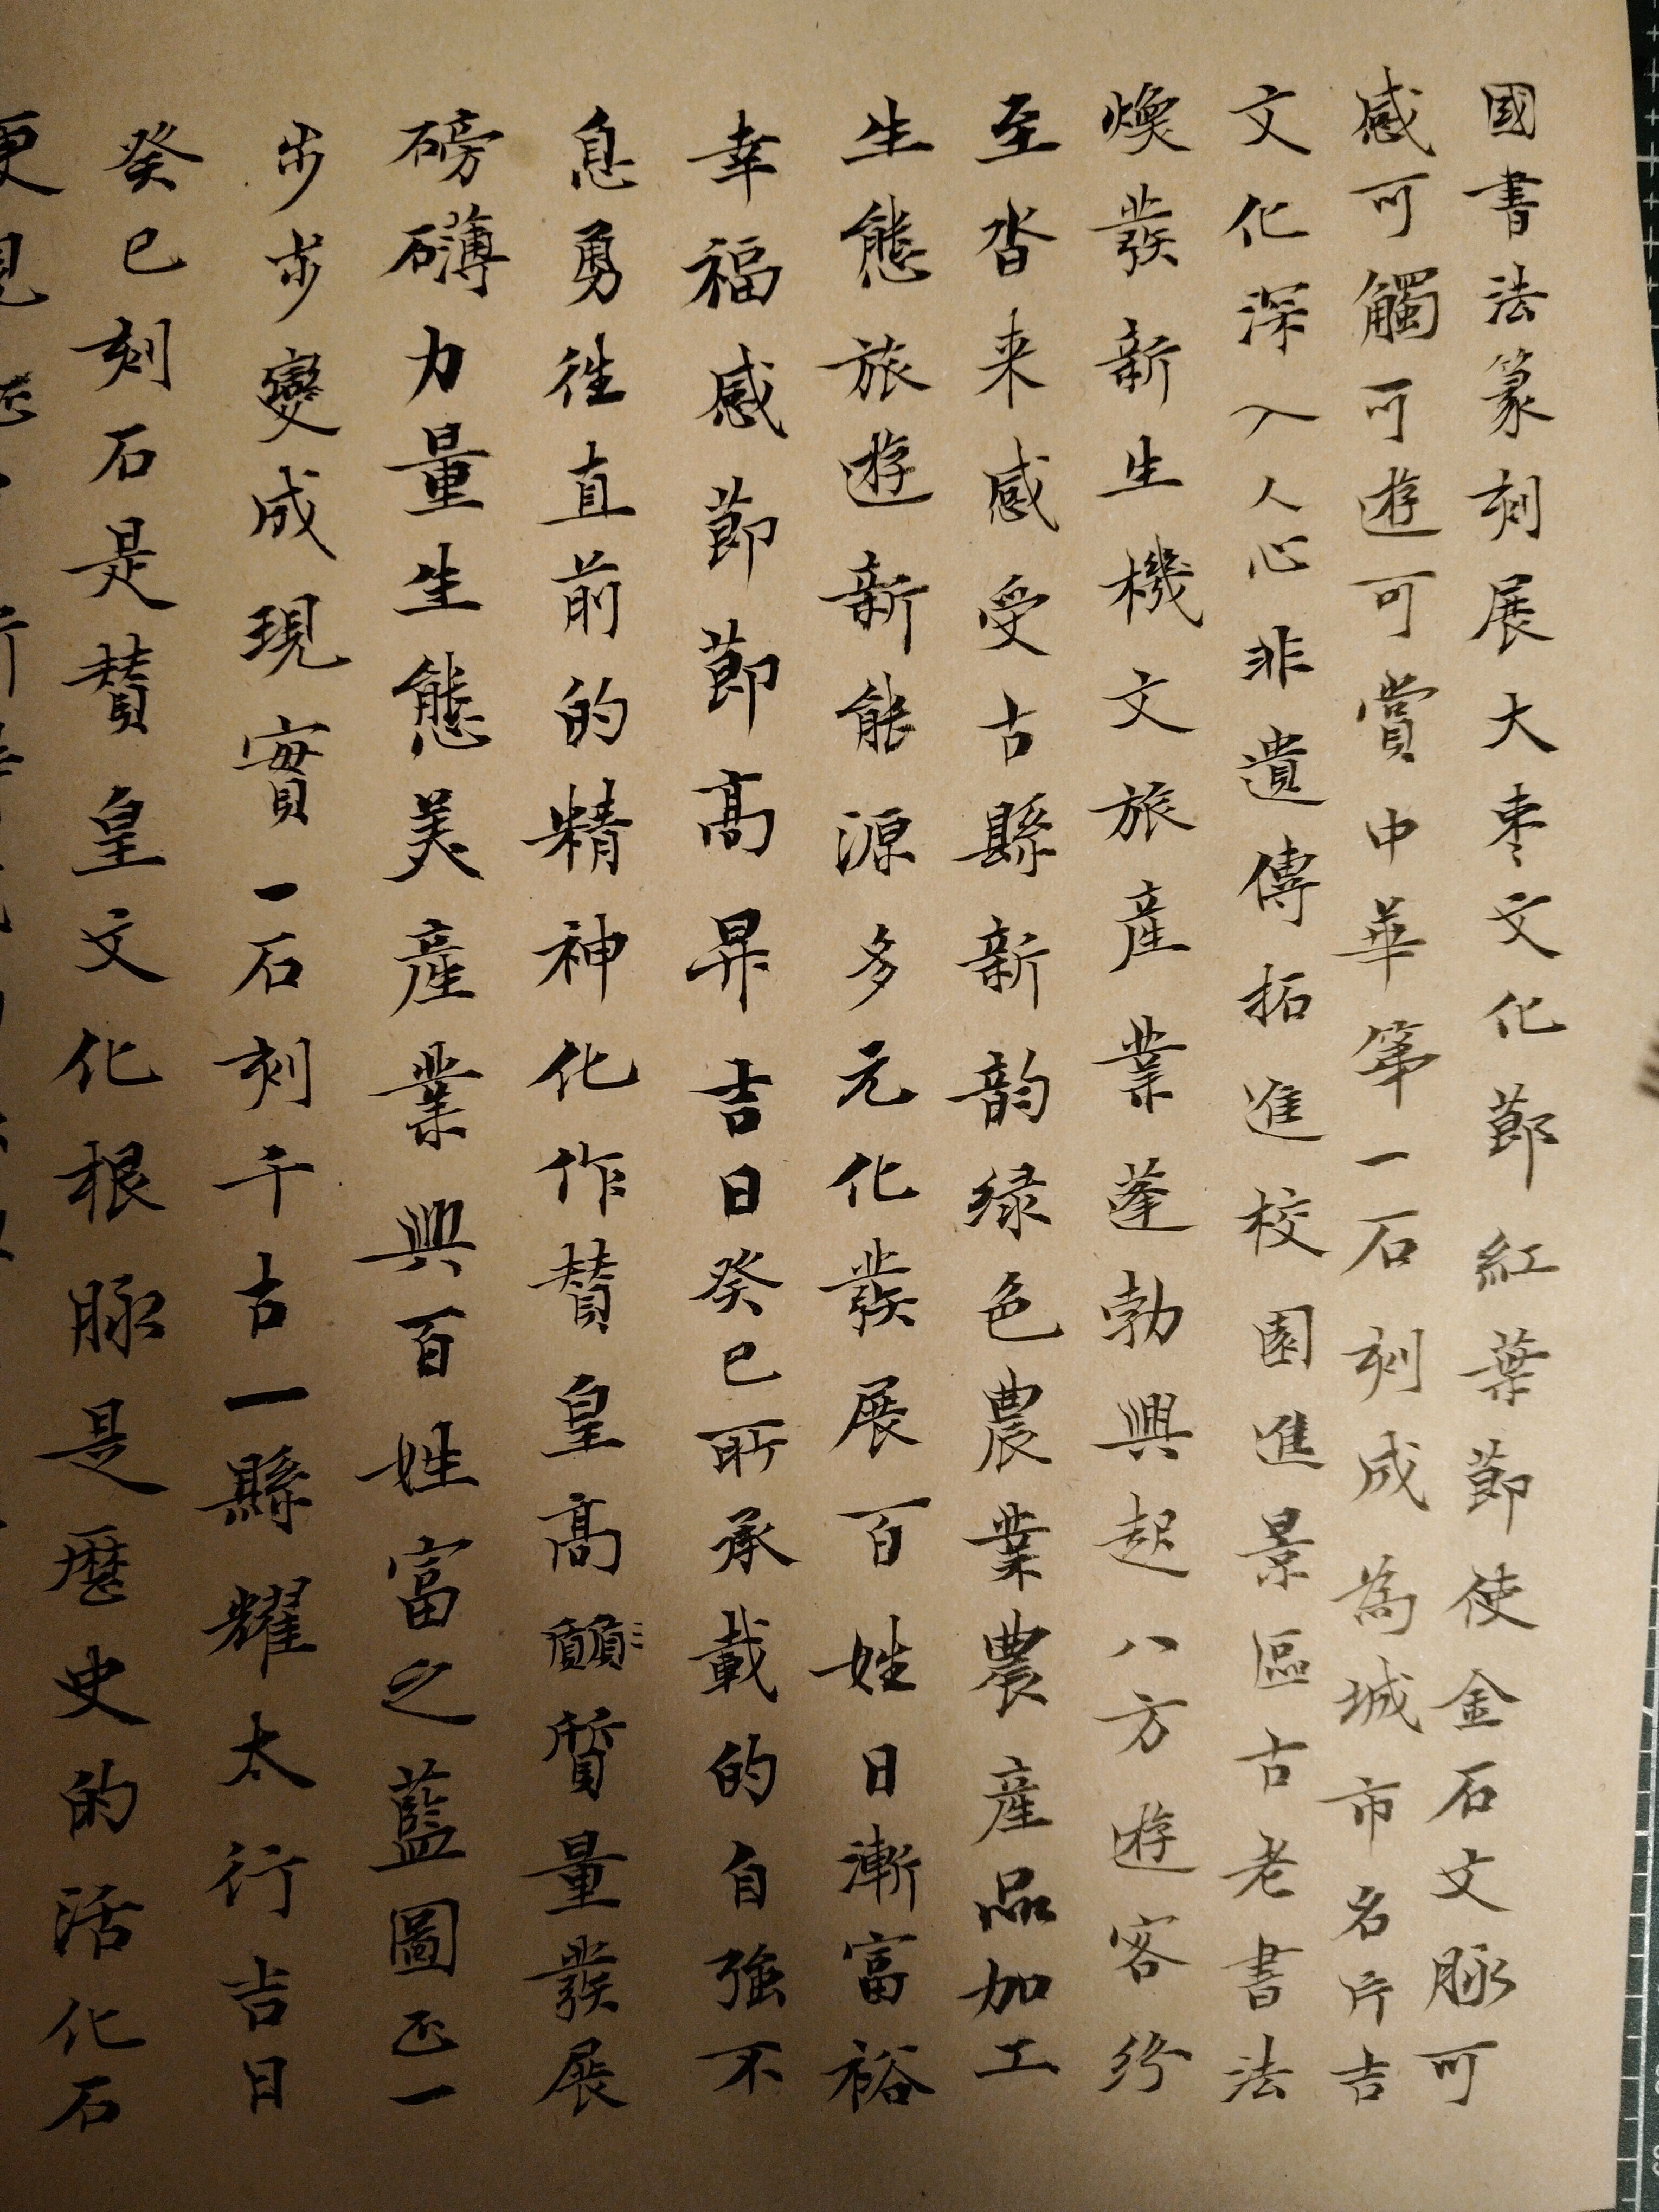 國書法篆刻展大枣文化節紅葉節使金石文脉可
感可觸可遊可賞中華第一石刻成為城市名片吉
文化深入人心非遺傳拓進校園進景區古老書法
煥發新生機文旅產業蓬勃興起八方遊客纷
至沓来感受古縣新韵绿色農業農產品加工
生態旅遊新能源多元化發展百姓日漸富裕
幸福感節節髙昇吉日癸巳所承載的自強不
息勇往直前的精神化作賛皇髙質量發展
磅礴力量生態美產業興百姓富之藍圖正一
步步變成現實一石刻千古一縣耀太行吉日
癸巳刻石是賛皇文化根脉是歷史的活化石
更見